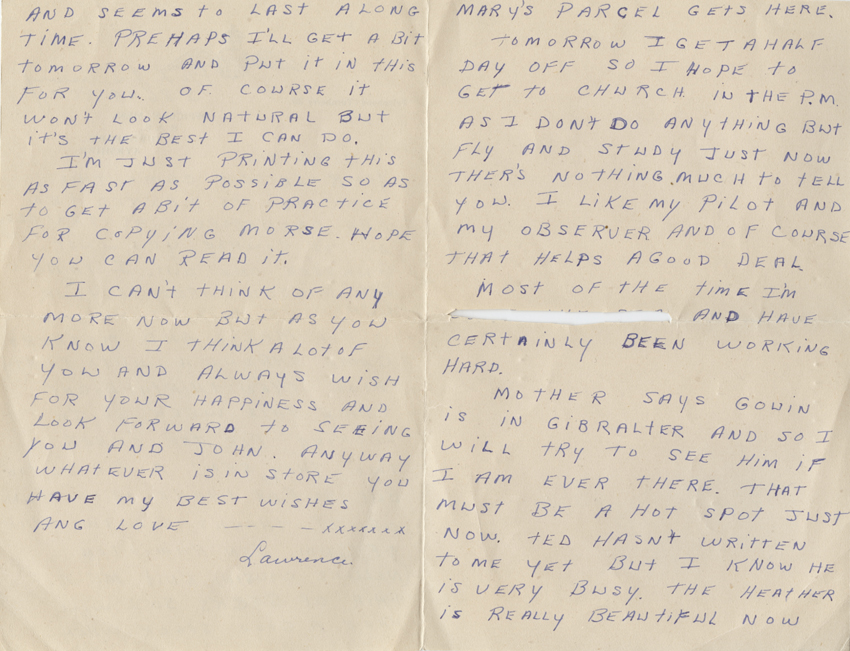 MARY'S PARCEL GETS HERE.
TOMORROW I GET A HALF
DAY OFF SO I HOPE TO
GET TO CHURCH IN THE P.M.
AS I DON'T DO ANYTHING BUT
FLY AND STUDY JUST NOW
THER'S NOTHING MUCH TO TELL
YOU. I LIKE MY PILOT AND
MY OBSERVER AND OF COURSE
THAT HELPS A GOOD DEAL
MOST OF THE TIME I'M
AND HAVE
CERTAINLY BEEN WORKING
HARD.
MOTHER SAYS GOWIN
IS IN GIBRALTER AND SO I
WILL TRY TO SEE HIM IF
I AM EVER THERE. THAT
MUST BE A HOT SPOT JUST
NOW. TED HASN'T WRITTEN
TO ME YET BUT I KNOW HE
IS VERY BUSY. THE HEATHER
IS REALLY BEAUTIFUL NOW
AND SEEMS TO LAST A LONG
TIME. PREHAPS I'LL GET A BIT
TOMORROW AND PUT IT IN THIS
FOR YOU. OF COURSE IT
WON'T LOOK NATURAL BUT
IT'S THE BEST I CAN DO.
I'M JUST PRINTING THIS
AS FAST AS POSSIBLE SO AS
TO GET A BIT OF PRACTICE
FOR COPYING MORSE. HOPE
YOU CAN READ IT.
I CAN'T THINK OF ANY
MORE NOW BUT AS YOU
KNOW I THINK A LOT OF
YOU AND ALWAYS WISH
FOR YOUR HAPPINESS AND
LOOK FORWARD TO SEEING
YOU AND JOHN. ANYWAY
WHATEVER IS IN STORE YOU
HAVE MY BEST WISHES
ANG LOVE - - - - XXXXXXX
Lawrence.